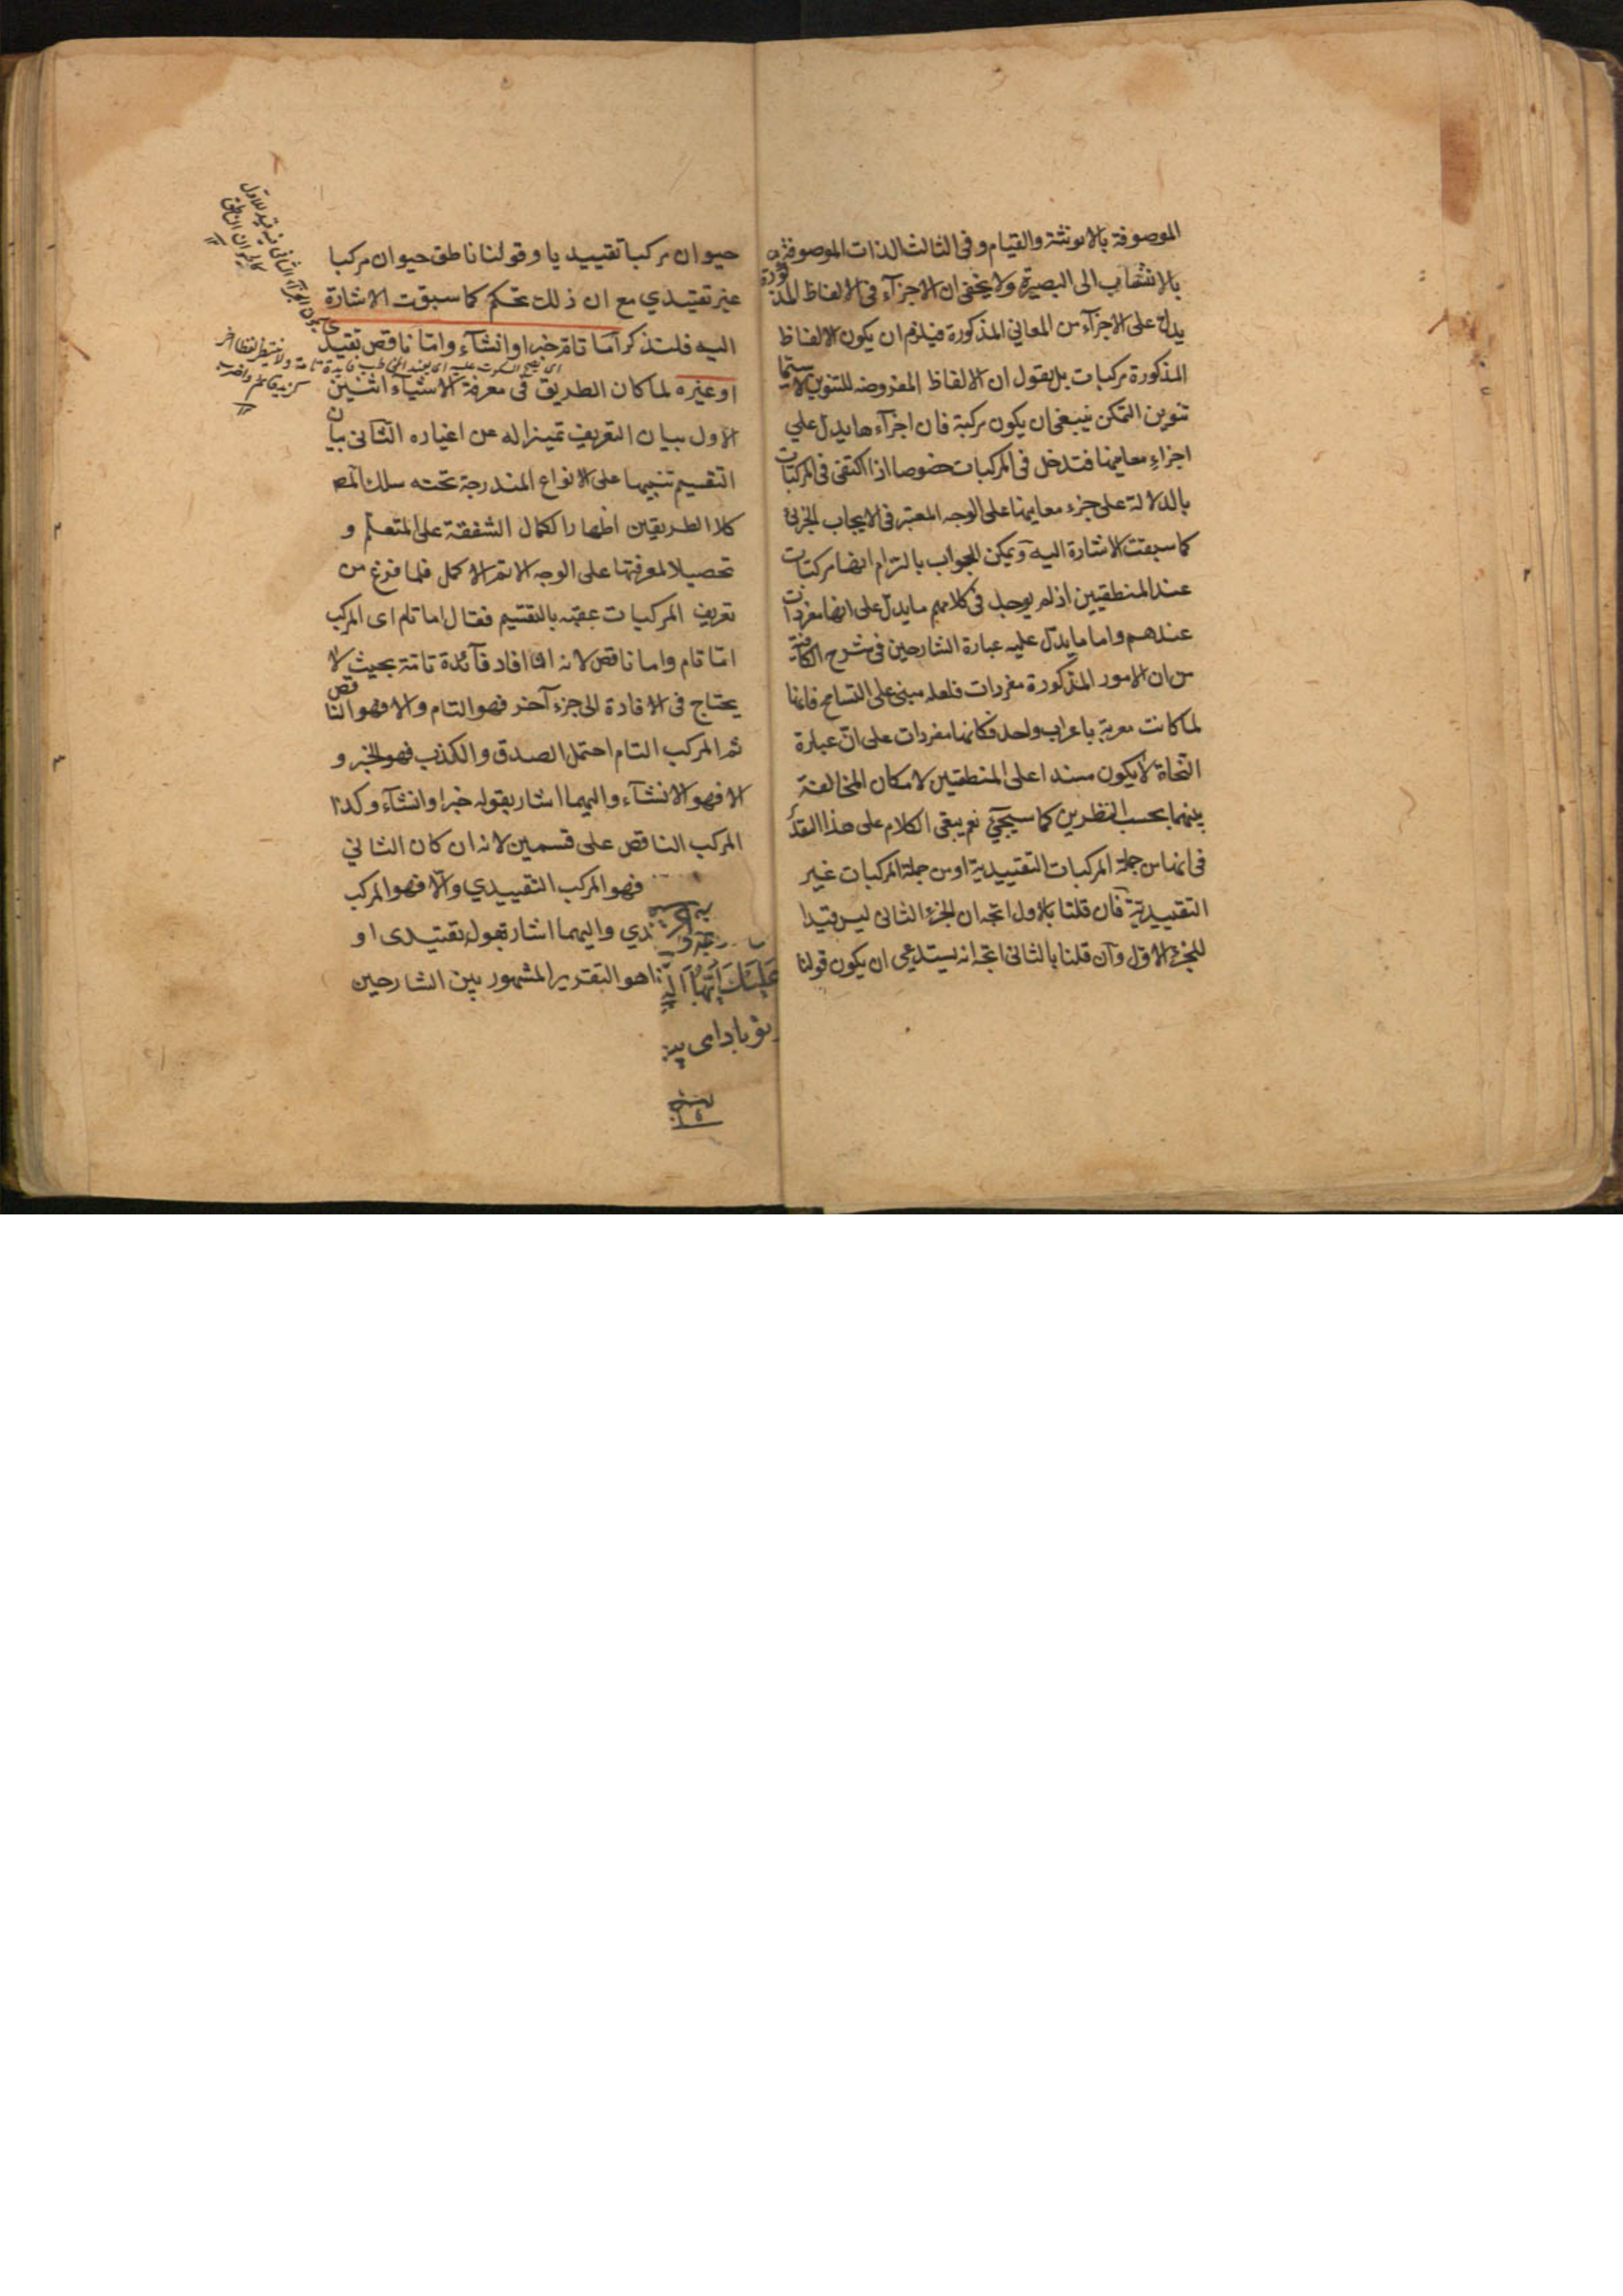 الموصوفة بالانوثة والقيام وفى الثالث الذات الموصوفة
بالانتساب الى البصرة ولا يخفى ان الاجزآء فى الالفاظ المذكورة
يدل على الاجزآء من المعاني المذكورة فيلزم ان يكون الالفاظ
المذكورة مركبات بل يقول ان الالفاظ المفروضه للتنوين لا سيّما
تنوين التمكن ينبغى ان يكون مركبة فان اجزآءها يدل علي
اجزاء معانيها فتدخل فى المركبات خصوصا اذا اكتفى فى المركبات
بالدلالة على جزء معانيها على الوجه المعتبر فى الايجاب الجزئ
كما سبقت الاشارة اليه ويمكن الجواب بالتزام انها مركبات
عند المنطقيين اذ لم يوجد فى كلامهم ما يدل على انها مفردات
عندهم واما ما يدل عليه عبارة الشارحين فى شرح الكافية
من ان الامور المذكورة مفردات فلعله مبنى على التسامح فانها
لما كانت معربة باعراب واحد فكانها مفردات على انّ عبارة
النحاة لا يكون مسندا على المنطقيين لامكان المخالفة
بينهما بحسب النظرين كما سيجئ نعم يبقى الكلام على هذا القدر
فى انها من جملة المركبات التقييدية او من جملة المركبات غير
التقييدية فان قلنا بالاول اتجه ان الجزء الثانى ليس قيدا
للجزء الاول وان قلنا بالثانى اتجه انه يستدعى ان يكون قولنا
حيوان مركبا تقييديا وقولنا ناطق حيوان مركبا
غير تقييدي مع ان ذلك تحكم كما سبقت الاشارة
اليه فلتذكر امّا تام خبر او انشآء وامّا ناقص تقييدى
اى يصح السكوت عليه اى يفيد المخاطب فايدة تامة ولا ينتظر لفظا آخر
او غيره لما كان الطريق فى معرفة الاشيآء اثنين
الاول ببيان التعريف تميزا له عن اغياره الثانى بيان
التقسيم تنبيها على الانواع المندرجة تحته سلك المص
كلا الطريقين اظهارا لكمال الشفقة على المتعلم و
تحصيلا لمعرفتها على الوجه الاتم الاكمل فلما فرغ من
تعريف المركبات عقبه بالتقسيم فقال اما تام اى المركب
امّا تام واما ناقص لانه امّا افاد فآئدة تامّة بحيث لا
يحتاج فى الافادة الى جزء آخر فهو التام والا فهو الناقص
ثم المركب التام احتمل الصدق والكذب فهو الخبر و
الا فهو الانشآء واليهما اشار بقوله خبر او انشآء وكذا
المركب الناقص على قسمين لانه ان كان الثاني
فهو المركب التقييدي والّا فهو المركب
واليهما اشار بقوله تقييدى او
هو التقرير المشهور بين الشارحين